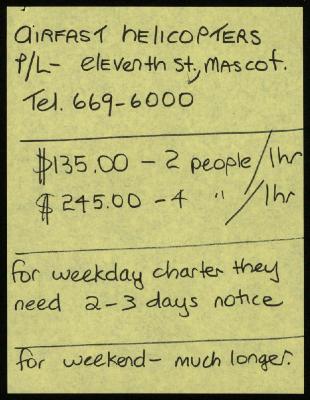 AIRFAST HELICOPTERS
P/L - eleventh St, MASCOT.
Tel. 669-6000
$135.00 - 2 people / 1hr
$245.00 - 4 " / 1hr
for weekday charter they
need 2-3 days notice
for weekend - much longer.